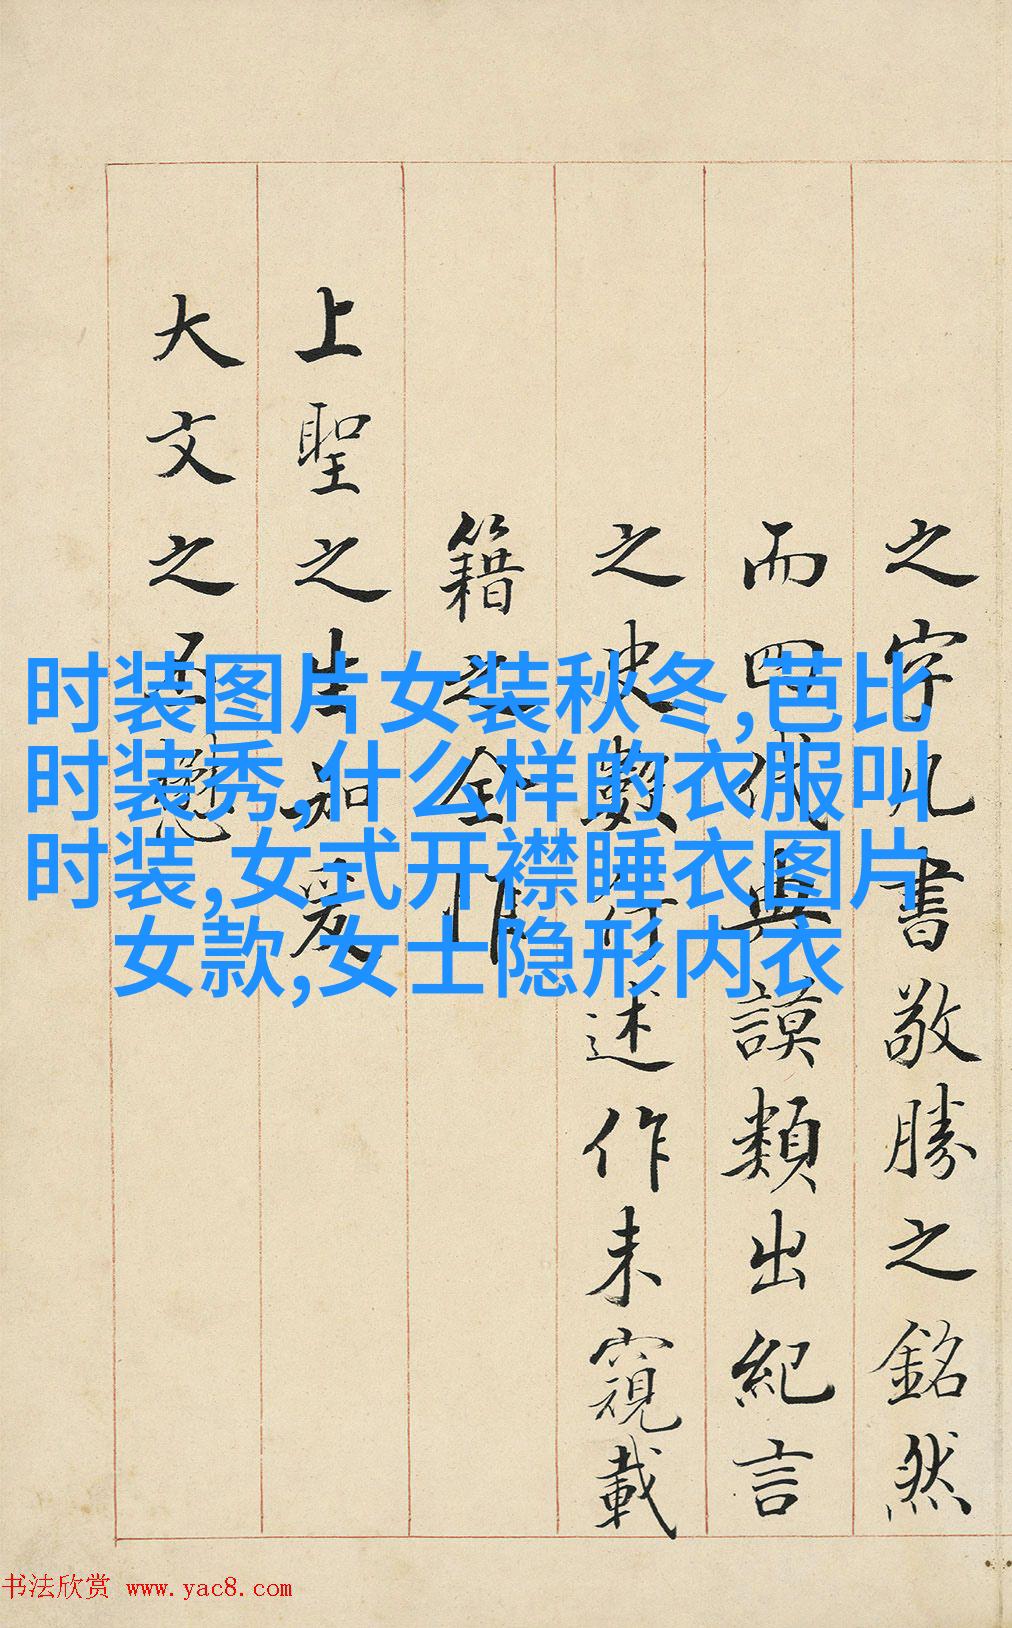 之字几書敬勝之銘然
而四代典謨類出紀言
之史數行述作未窺載
籍之全惟
上聖之生知爰
大文之丕
时装图片女装秋冬,芭比
时装秀,什么样的衣服叫
时装,女式开襟睡衣图片
女款,女士隐形内衣
书法欣赏 www.yac8.com